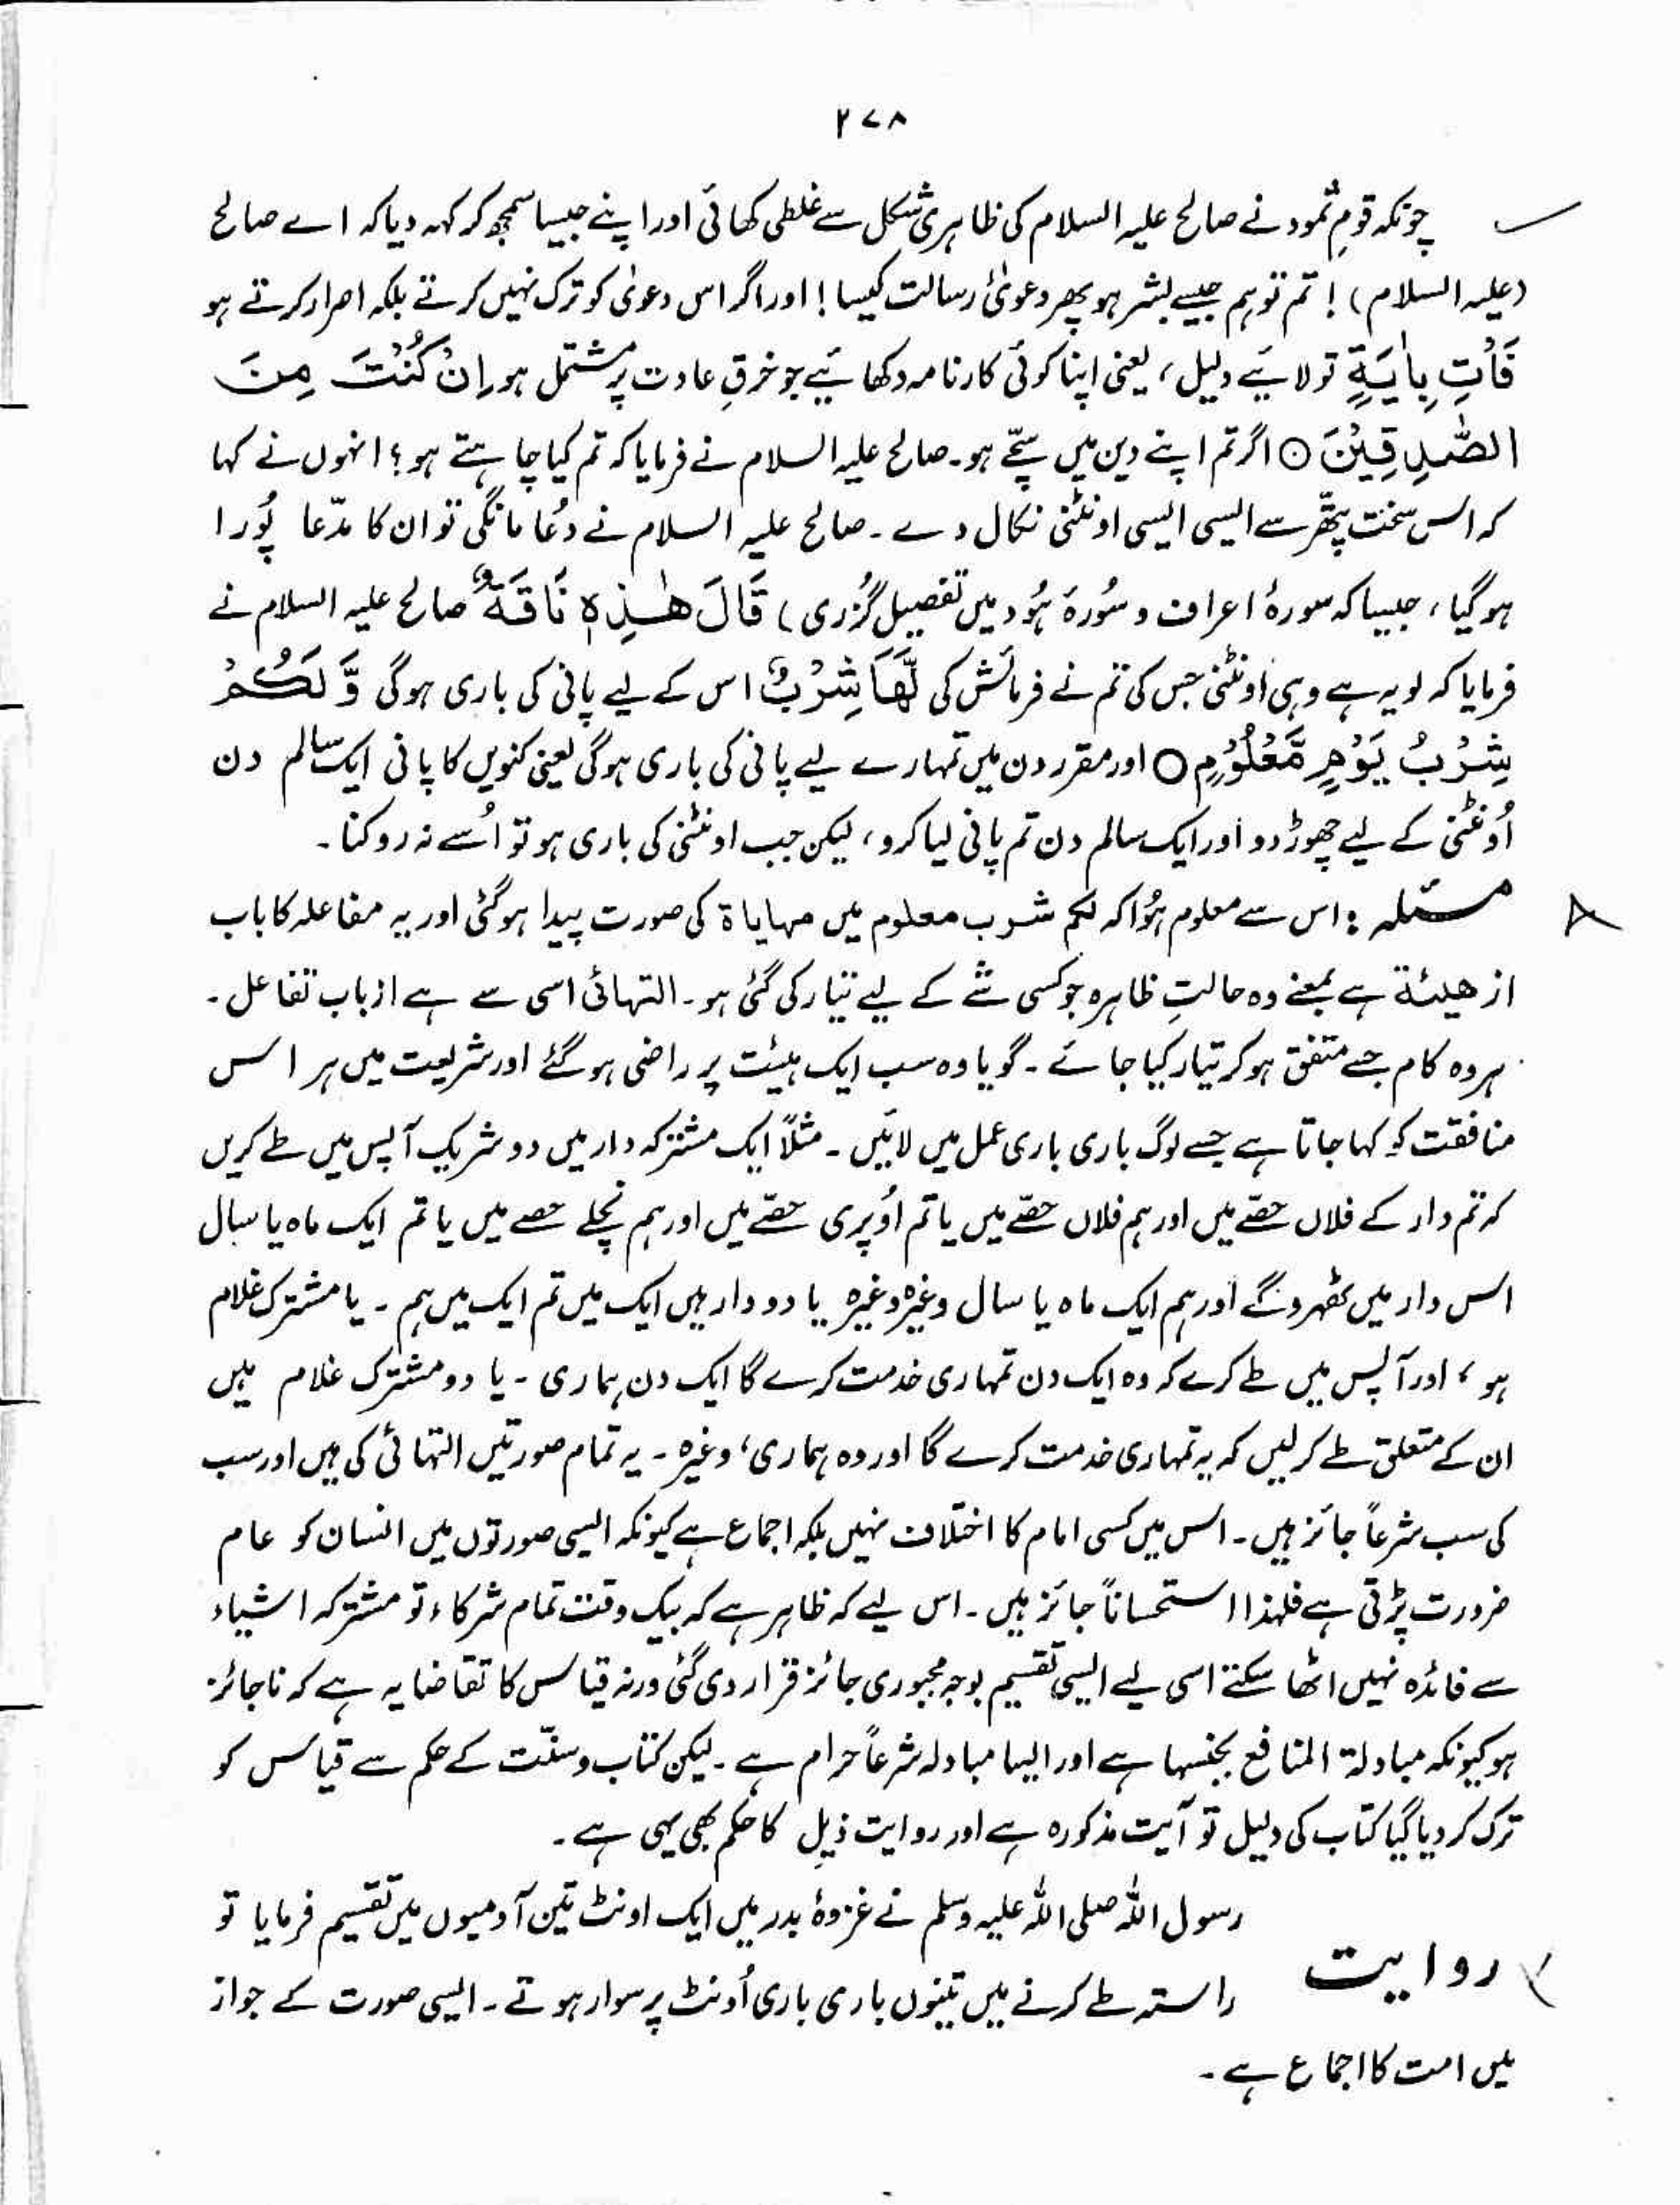 ۲۷۸
چونکہ قومِ ثمود نے صالح علیہ السلام کی ظاہری شکل سے غلطی کھائی اور اپنے جیسا سمجھ کر کہہ دیا کہ اے صالح
(علیہ السلام)! تم تو ہم جیسے بشر ہو پھر دعویٰ رسالت کیسا! اور اگر اس دعویٰ کو ترک نہیں کرتے بلکہ اصرار کرتے ہو
فَاْتِ بِاٰيَةٍ تو لائیے دلیل، یعنی اپنا کوئی کارنامہ دکھائیے جو خرقِ عادت پر مشتمل ہو اِنْ كُنْتَ مِنَ
الصّٰدِقِيْنَ ○ اگر تم اپنے دین میں سچے ہو۔ صالح علیہ السلام نے فرمایا کہ تم کیا چاہتے ہو؛ انہوں نے کہا
کہ اس سخت پتھر سے ایسی ایسی اونٹنی نکال دے۔ صالح علیہ السلام نے دُعا مانگی تو ان کا مدّعا پُورا
ہوگیا، جیسا کہ سورۂ اعراف و سُورۂ ہُود میں تفصیل گزری) قَالَ هٰذِهٖ نَاقَةٌ صالح علیہ السلام نے
فرمایا کہ لو یہ ہے وہی اونٹنی جس کی تم نے فرمائش کی لَّهَا شِرْبٌ اس کے لیے پانی کی باری ہوگی وَّ لَكُمْ
شِرْبُ يَوْمٍ مَّعْلُوْمٍ ○ اور مقرر دن میں تمہارے لیے پانی کی باری ہوگی یعنی کنویں کا پانی ایک سالم دن
اُونٹنی کے لیے چھوڑ دو اور ایک سالم دن تم پانی لیا کرو، لیکن جب اونٹنی کی باری ہو تو اُسے نہ روکنا۔
مسئلہ: اس سے معلوم ہُوا کہ لکم شرب معلوم میں مہایاۃ کی صورت پیدا ہوگئی اور یہ مفاعلہ کا باب
از ھیئۃ ہے بمعنے وہ حالتِ ظاہرہ جو کسی شے کے لیے تیار کی گئی ہو۔ التہائی اسی سے ہے از باب تفاعل۔
ہر وہ کام جسے متفق ہو کر تیار کیا جائے۔ گویا وہ سب ایک ہیئت پر راضی ہوگئے اور شریعت میں ہر اس
منافقت کو کہا جاتا ہے جسے لوگ باری باری عمل میں لائیں۔ مثلاً ایک مشترکہ دار میں دو شریک آپس میں طے کریں
کہ تم دار کے فلاں حصّے میں اور ہم فلاں حصّے میں یا تم اُوپری حصّے میں اور ہم نچلے حصے میں یا تم ایک ماہ یا سال
اس دار میں ٹھہروگے اور ہم ایک ماہ یا سال وغیرہ وغیرہ یا دو دار ہیں ایک میں تم ایک میں ہم۔ یا مشترک غلام
ہو، اور آپس میں طے کرے کہ وہ ایک دن تمہاری خدمت کرے گا ایک دن ہماری۔ یا دو مشترک غلام ہیں
ان کے متعلق طے کرلیں کہ یہ تمہاری خدمت کرے گا اور وہ ہماری، وغیرہ۔ یہ تمام صورتیں التہائی کی ہیں اور سب
کی سب شرعاً جائز ہیں۔ اس میں کسی امام کا اختلاف نہیں بلکہ اجماع ہے کیونکہ ایسی صورتوں میں انسان کو عام
ضرورت پڑتی ہے فلہذا استحساناً جائز ہیں۔ اس لیے کہ ظاہر ہے کہ بیک وقت تمام شرکاء تو مشترکہ اشیاء
سے فائدہ نہیں اٹھا سکتے اسی لیے ایسی تقسیم بوجہ مجبوری جائز قرار دی گئی ورنہ قیاس کا تقاضا یہ ہے کہ ناجائز
ہو کیونکہ مبادلۃ المنافع بجنسہا ہے اور ایسا مبادلہ شرعاً حرام ہے۔ لیکن کتاب و سنّت کے حکم سے قیاس کو
ترک کر دیا گیا کتاب کی دلیل تو آیت مذکورہ ہے اور روایت ذیل کا حکم بھی یہی ہے۔
رسول اللہ صلی اللہ علیہ وسلم نے غزوۂ بدر میں ایک اونٹ تین آدمیوں میں تقسیم فرمایا تو
روایت
راستہ طے کرنے میں تینوں باری باری اُونٹ پر سوار ہوتے۔ ایسی صورت کے جواز
میں امت کا اجماع ہے۔